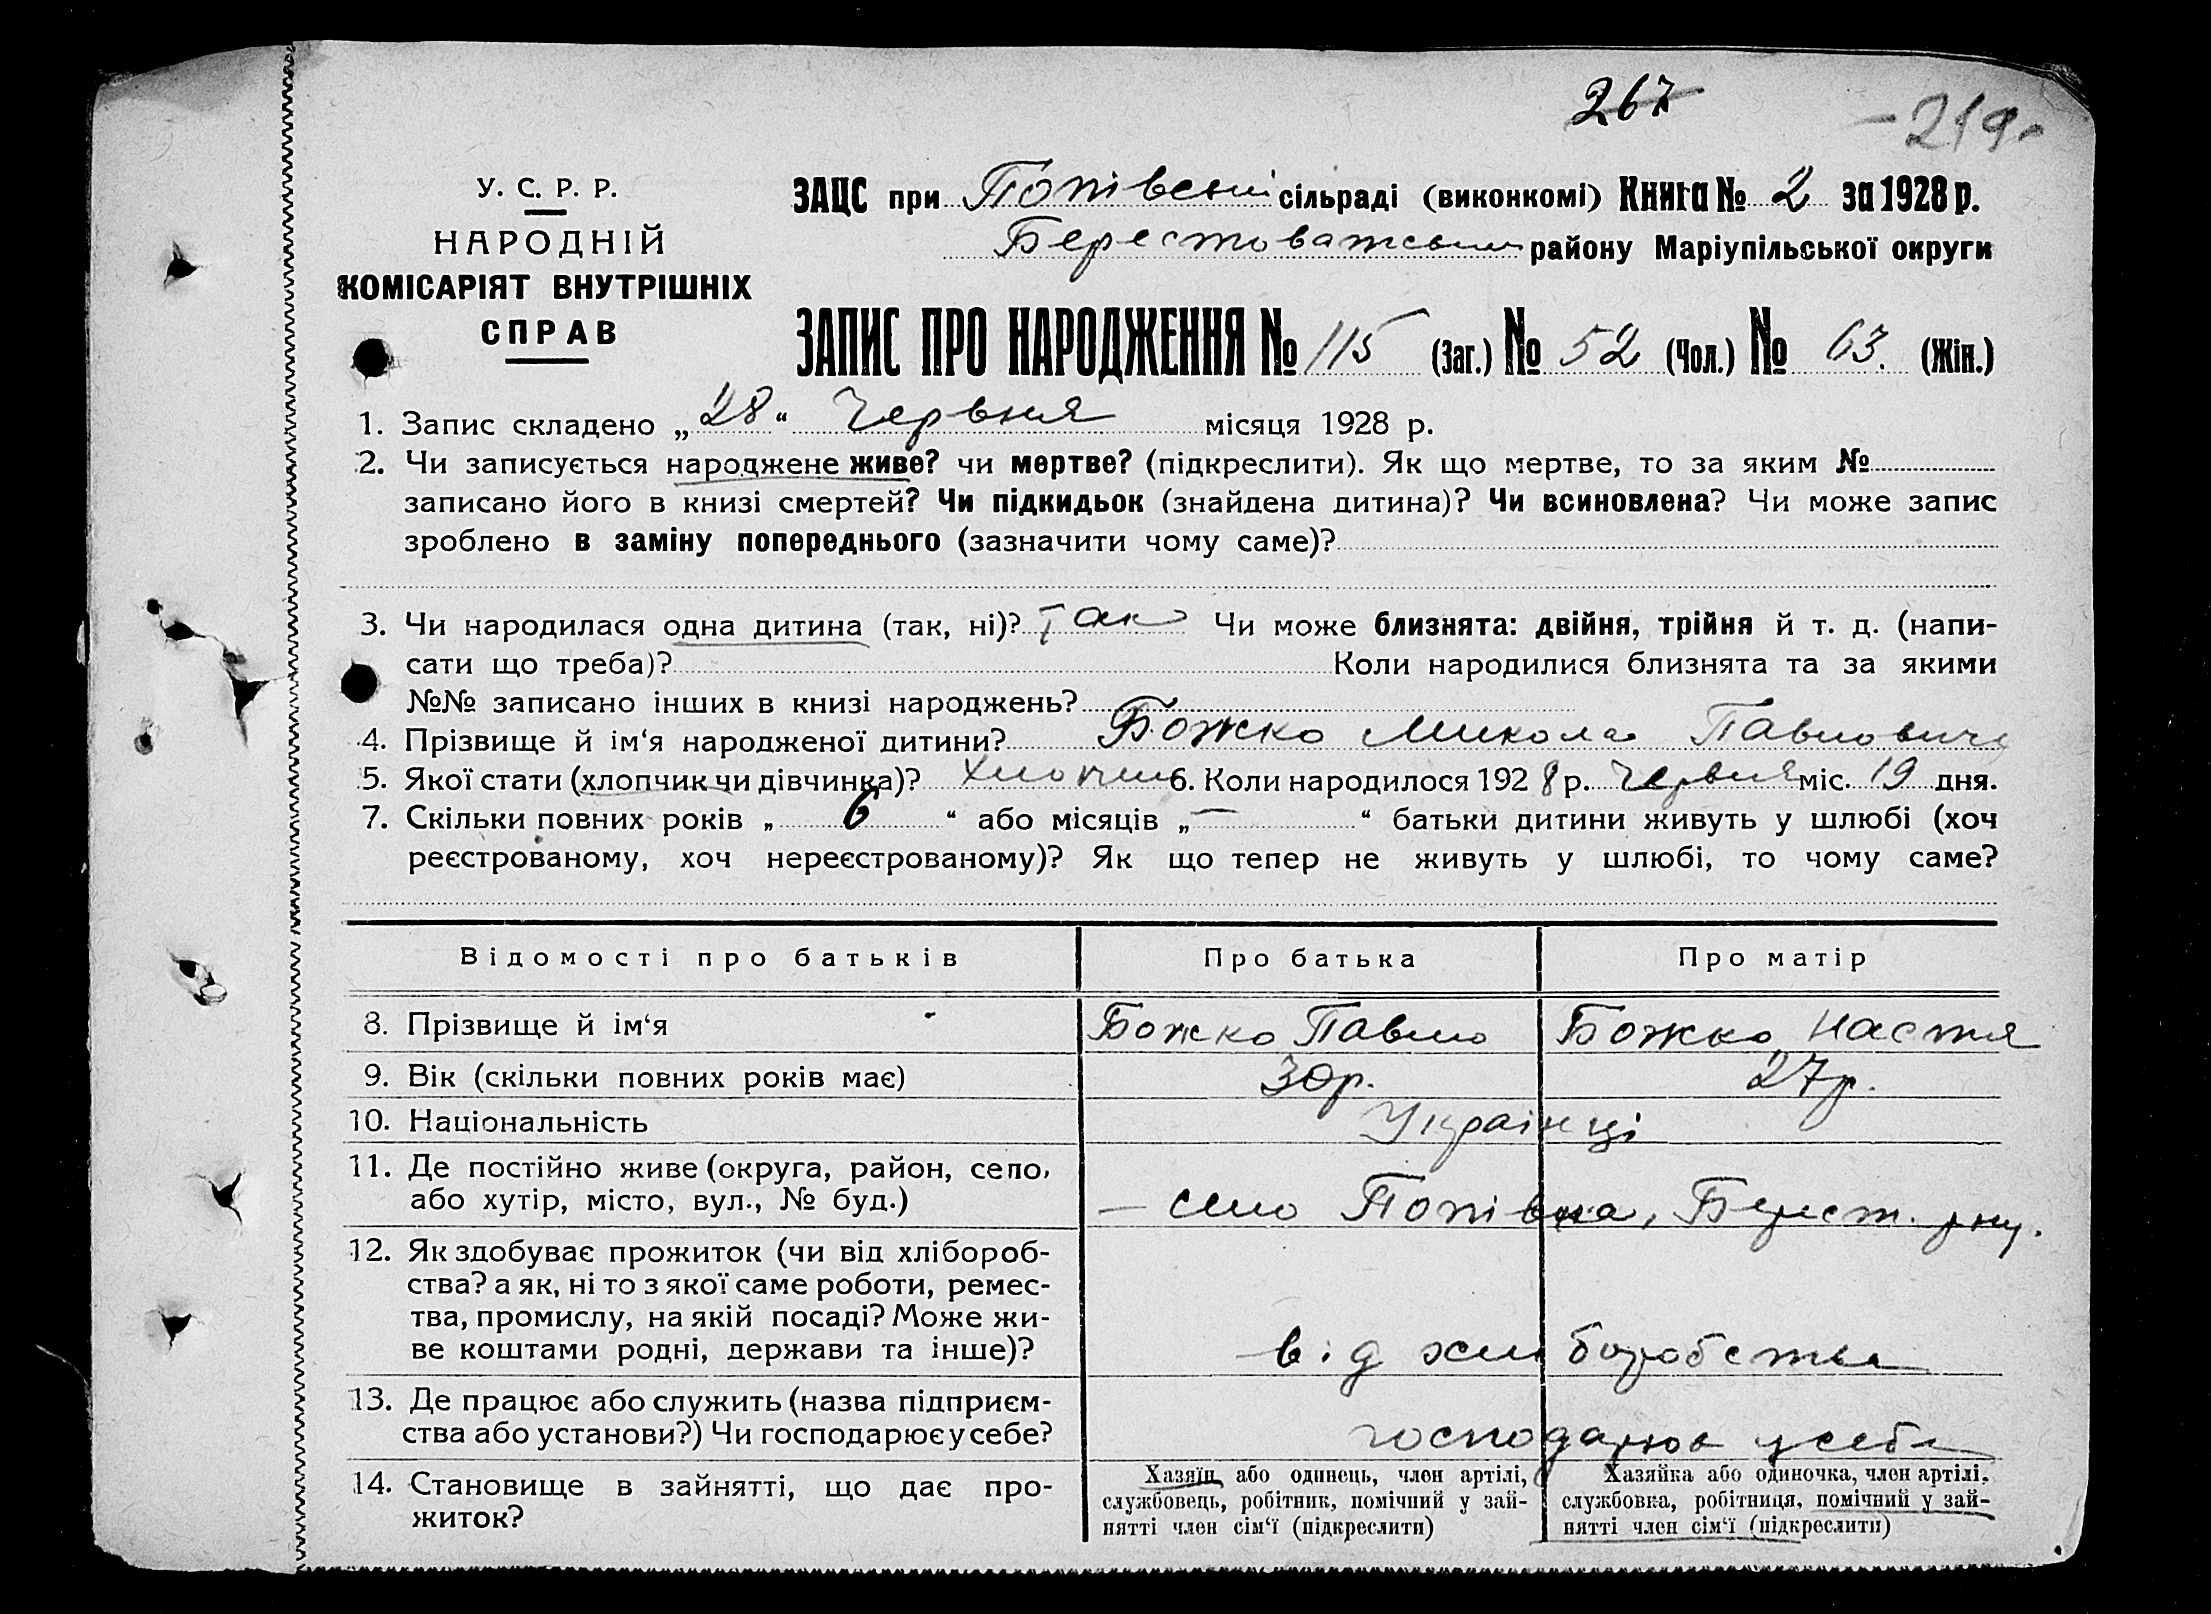 267
- 219 -
У. С. Р. Р.
НАРОДНІЙ
КОМІСАРІЯТ ВНУТРІШНІХ
СПРАВ
ЗАЦС при Попівській сільраді (виконкомі) Книга № 2 за 1928 р.
району Маріупільської округи
ЗАПИС ПРО НАРОДЖЕННЯ № 115 (Заг.) № 52 (Чол.) № 63. (Жін.)
1. Запис складено „28“ Червня місяця 1928 р.
2. Чи записується народжене живе? чи мертве? (підкреслити). Як що мертве, то за яким №
записано його в книзі смертей? Чи підкидьок (знайдена дитина)? Чи всиновлена? Чи може запис
зроблено в заміну попереднього (зазначити чому саме)?
3. Чи народилася одна дитина (так, ні)? Так Чи може близнята: двійня, трійня й т. д. (напи-
сати що треба)? Коли народилися близнята та за якими
№№ записано інших в книзі народжень?
4. Прізвище й ім‘я народженої дитини? Божко Микола Павлович
5. Якої стати (хлопчик чи дівчинка)? Хлопчик 6. Коли народилося 1928 р. Червня міс. 19 дня.
7. Скільки повних років „ 6 “ або місяців „ — “ батьки дитини живуть у шлюбі (хоч
реєстрованому, хоч нереєстрованому)? Як що тепер не живуть у шлюбі, то чому саме?
Відомості про батьків Про батька Про матір
8. Прізвище й ім‘я Божко Павло Божко Настя
9. Вік (скільки повних років має) 30 р. 27 р.
10. Національність Українці
11. Де постійно живе (округа, район, село,
або хутір, місто, вул., № буд.) — село Попівка, Берест. р-ну.
12. Як здобуває прожиток (чи від хлібороб-
ства? а як, ні то з якої саме роботи, ремес-
тва, промислу, на якій посаді? Може жи-
ве коштами родні, держави та інше)? від хліборобства
13. Де працює або служить (назва підприєм-
ства або установи?) Чи господарює у себе? господарює у себе
14. Становище в зайнятті, що дає про-
житок?
Хазяїн або одинець, член артілі,
службовець, робітник, помічний у зай-
нятті член сім‘ї (підкреслити)
Хазяйка або одиночка, член артілі,
службовка, робітниця, помічний у зай-
нятті член сім‘ї (підкреслити)